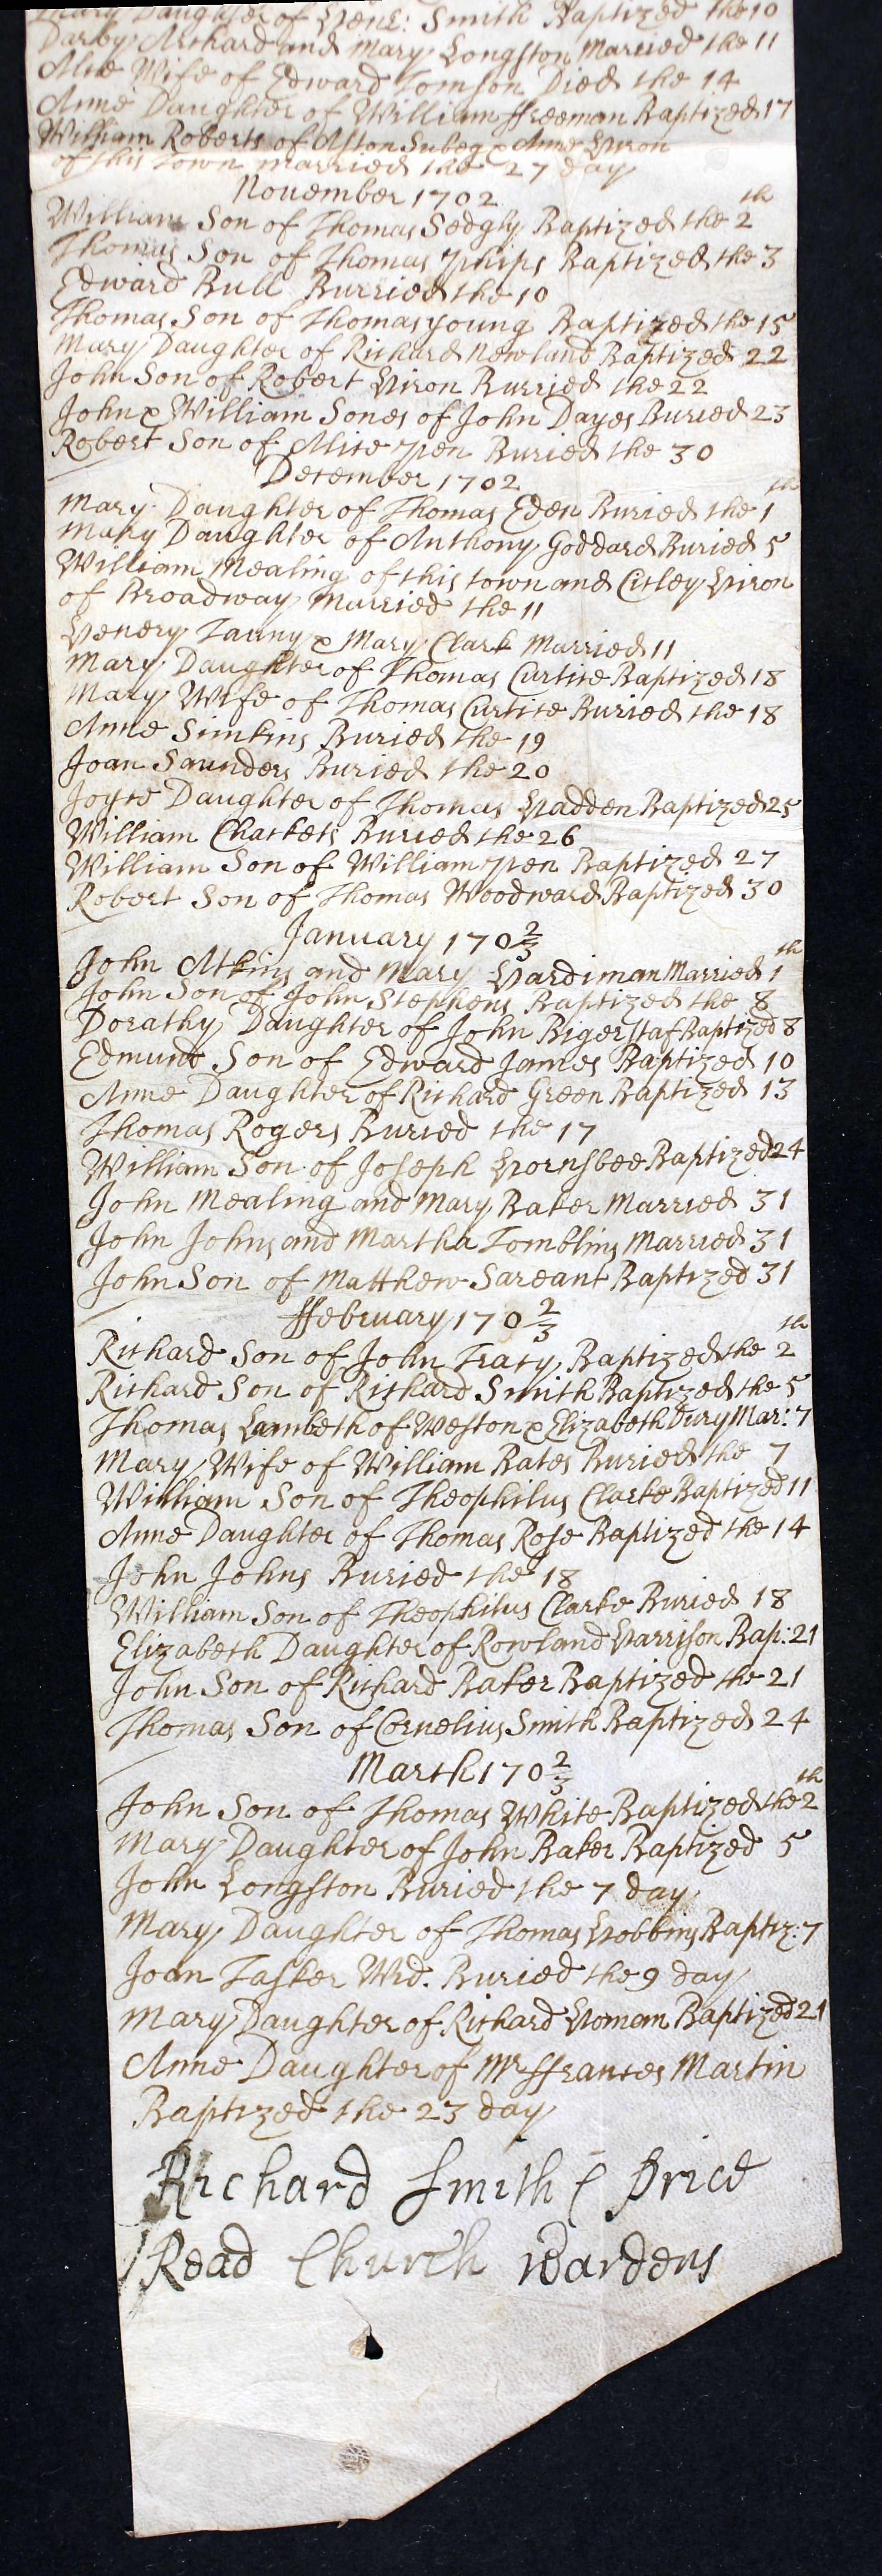 Mary Daughter of Hene: Smith Baptized the 10
Darby Archard and Mary Longston Married the 11
Alice Wife of Edward Tomson Died the 14
Anne Daughter of William ffreeman Baptized 17
William Roberts of Aston Subeg & Anne Hiron
of this Town married the 27 day
November 1702
William Son of Thomas Sedgly Baptized the 2th
Thomas Son of Thomas Phips Baptized the 3
Edward Bull Burried the 10
Thomas Son of Thomas young Baptized the 15
Mary Daughter of Richard Newland Baptized 22
John Son of Robert Hiron Burried the 22
John & William Sones of John Dayes Buried 23
Robert Son of Alice Pen Buried the 30
December 1702
Mary Daughter of Thomas Eden Buried the 1th
Mary Daughter of Anthony Goddard Buried 5
William Mealing of this town and Cicley Hiron
of Broadway Married the 11
Henery Tanny & Mary Clark Married 11
Mary Daughter of Thomas Curtice Baptized 18
Mary Wife of Thomas Curtice Buried the 18
Anne Simkins Buried the 19
Joan Saunders Buried the 20
Joyce Daughter of Thomas Hadden Baptized 25
William Chackets Buried the 26
William Son of William Pen Baptized 27
Robert Son of Thomas Woodward Baptized 30
January 170 2/3
John Atkins and Mary Hardiman Married 1th
John Son of John Stephens Baptized the 8
Dorathy Daughter of John Bigerstaf Baptized 8
Edmund Son of Edward James Baptized 10
Anne Daughter of Richard Green Baptized 13
Thomas Rogers Buried the 17
William Son of Joseph Hornsbee Baptized 24
John Mealing and Mary Baker Married 31
John Johns and Martha Tomblins Married 31
John Son of Matthew Sareant Baptized 31
ffebruary 170 2/3
Richard Son of John Tracy Baptized the 2th
Richard Son of Richard Smith Baptized the 5
Thomas Lambeth of Weston & Elizabeth Dury Mar: 7
Mary Wife of William Bates Buried the 7
William Son of Theophilus Clarke Baptized 11
Anne Daughter of Thomas Rose Baptized the 14
John Johns Buried the 18
William Son of Theophilus Clarke Buried 18
Elizabeth Daughter of Rowland Harrison Bap: 21
John Son of Richard Baker Baptized the 21
Thomas Son of Cornelius Smith Baptized 24
March 170 2/3
John Son of Thomas White Baptized the 2th
Mary Daughter of John Baker Baptized 5
John Longston Buried the 7 day
Mary Daughter of Thomas Hobbins Baptiz: 7
Joan Tasker Wid. Buried the 9 day
Mary Daughter of Richard Homan Baptized 21
Anne Daughter of Mr ffrances Martin
Baptized the 23 day
Richard Smith & Price
Read Church Wardens